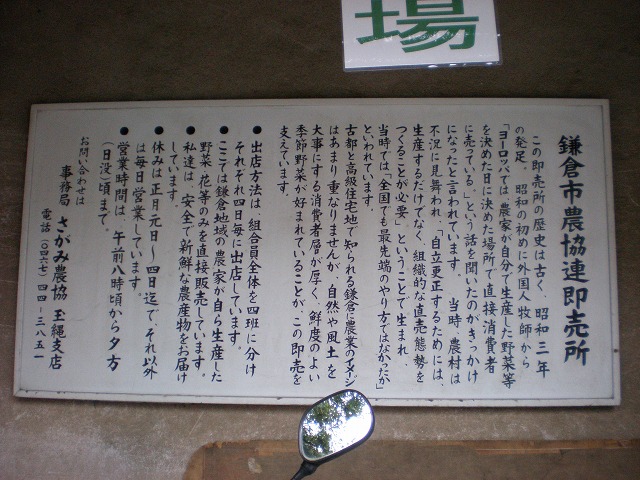 場
鎌倉市農協連即売所
この即売所の歴史は古く、昭和三年
の発足。昭和の初めに外国人牧師から
「ヨーロッパでは、農家が自分で生産した野菜等
を決めた日に決めた場所で直接消費者
に売っている。」という話を聞いたのがきっかけ
になったと言われています。当時、農村は
不況に見舞われ、「自立更正するためには、
生産するだけでなく、組織的な直売態勢を
つくることが必要」ということで生まれ、
当時では、全国でも最先端のやり方ではなかったか
といわれています。
古都と高級住宅地で知られる鎌倉に農業のイメージ
はあまり重なりませんが、自然や風土を
大事にする消費者層が厚く、鮮度のよい
季節野菜が好まれていることが、この即売を
支えています。
●出店方法は、組合員全体を四班に分け
それぞれ四日毎に出店しています。
●ここでは鎌倉地域の農家が自ら生産した
野菜、花等のみを直接販売しています。
●私達は、安全で新鮮な農産物をお届け
しています。
●休みは正月元日〜四日迄で、それ以外
は毎日営業しています。
●営業時間は、午前八時頃から夕方
(日没)頃まで。
お問い合わせは
事務局 さがみ農協 玉縄支店
電話(〇四六七)四四-三八五一